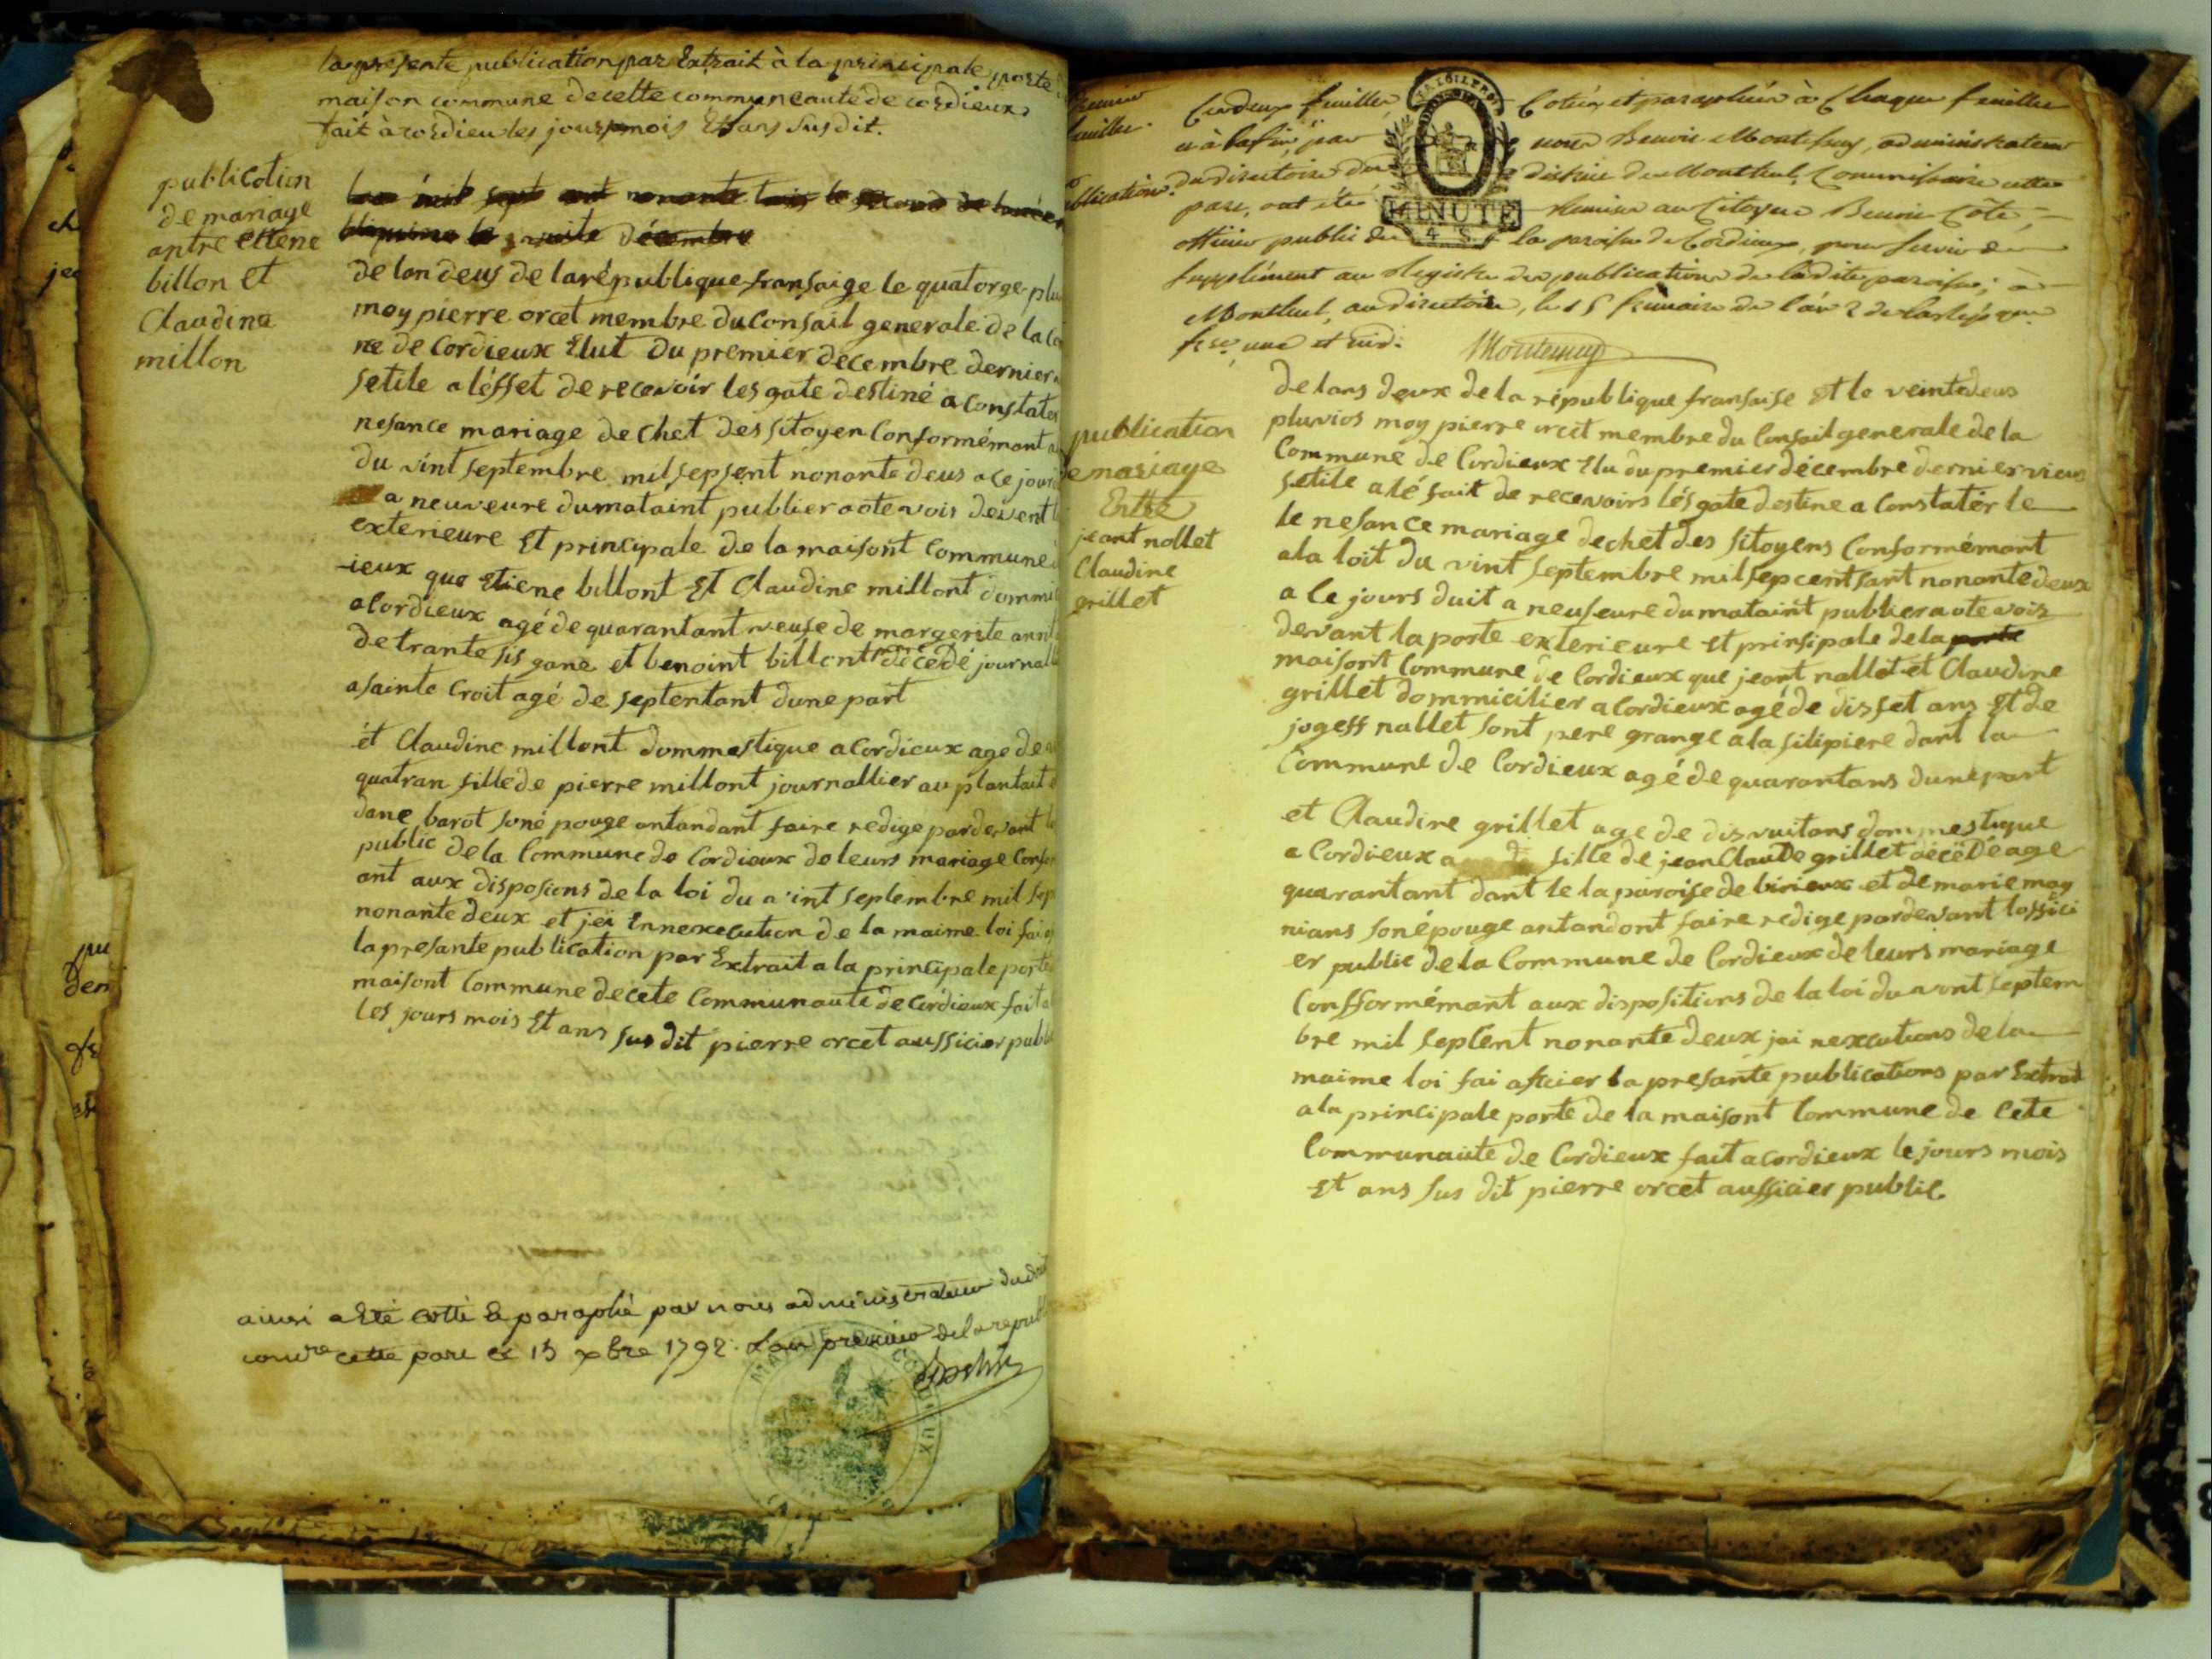 la presente publication par Extrait à la principale porte
maison commune de cette communeauté de cordieux
fait à cordieu les jours mois Et ans Susdit.
publication
de mariage
antre Etiene
billon et
Claudine
millon
de lan deus de la république fransaige le quatorge plu
moy pierre orcet membre du Consail generale de la Co
ne de Cordieux Elut Du premier decembre dernier
setile a léffet de recevoir les gate destiné a Constater
nesance mariage de chet des sitoyen Conformémant a
du vint septembre mil sepsent nonante deus a ce jour
a neuveure du mataint publier aote vois devent l
exterieure Et principale de la maisont Commune
ieux que Etiene billont Et Claudine millont dommi
a Cordieux agé de quarantant veuse de margerite ann
de trante sis gane et benoint billont pere décedé journal
a sainte Croit agé de septentant dune part
et Claudine millont dommestique a Cordieux age de
quatran fille de pierre millont journallier au plantait
dane barot soné pouge antandant faire redige pardevant l
public de la Commune de Cordieux de leurs mariage Confor
ant aux disposiens de la loi du vint septembre mil sep
nonante deux et jei Ennexecution de la maime loi fai
la presante publication par Extrait a la principale porte
maisont Commune de cete Communauté de Cordieux fait a
les jours mois Et ans sus dit pierre orcet aussicier publi
ainsi a Eté cotté & paraphé par nous administrateur du di
comre cette part ce 13 xbre 1792. L'an premier de la repub
feuille.
Ces deux feuilles Cotées et paraphées à Chaque feuille
et à la fin, par nous Benoit Montessuy, administrateur
publication. du directoire du district de Montluel, Commissaire cette
part, ont été remises au Citoyen Benoit Côte,
officier public de la paroisse de Cordieux, pour servir de
supplément au Registre des publications de ladite paroisse; à
Montluel, au directoire, le 15 frimaire de l'an 2 de la Rép.
MINUTE
4 S
frse une et ind. Montessuy
publication
de mariage
Entre
jeant nollet
Claudine
grillet
de lans deux de la république fransaise Et le veintedeus
pluvios moy pierre orcet membre du Consail generale de la
Commune de Cordieux Elu du premier décembre dernier vieus
setile a lé fait de recevoirs lés gate destine a Constatér le
le nesance mariage dechet des sitoyens Conformémant
a la loit du vint septembre mil sepcent sant nonante deux
a ce jours duit a neuseure du mataint publier aote vois
devant la porte exterieure Et prinsipale de la porte
maisont Commune de Cordieux que jeant nallet et Claudine
grillet dommicilier a Cordieux agé de disset ans Et de
jogess nallet sont pere grange a la silipiere dant la
Commune de Cordieux agé de quarantans dune part
et Claudine grillet age de disvuitans dommestique
a Cordieux fille de jean Claude grillet décédé age
quarantant dant le la paroise de birieux et de marie mag
nians son épouge antandont faire redige pardevant lossici
er public de la Commune de Cordieux de leurs mariage
Confformémant aux dispositions de la loi du vint septem
bre mil septent nonante deux jai nexecutions de la
maime loi fai aficier la presante publications par Extrait
a la principale porte de la maisont Commune de Cete
Communauté de Cordieux fait a cordieux le jours mois
Et ans sus dit pierre orcet aussicier public